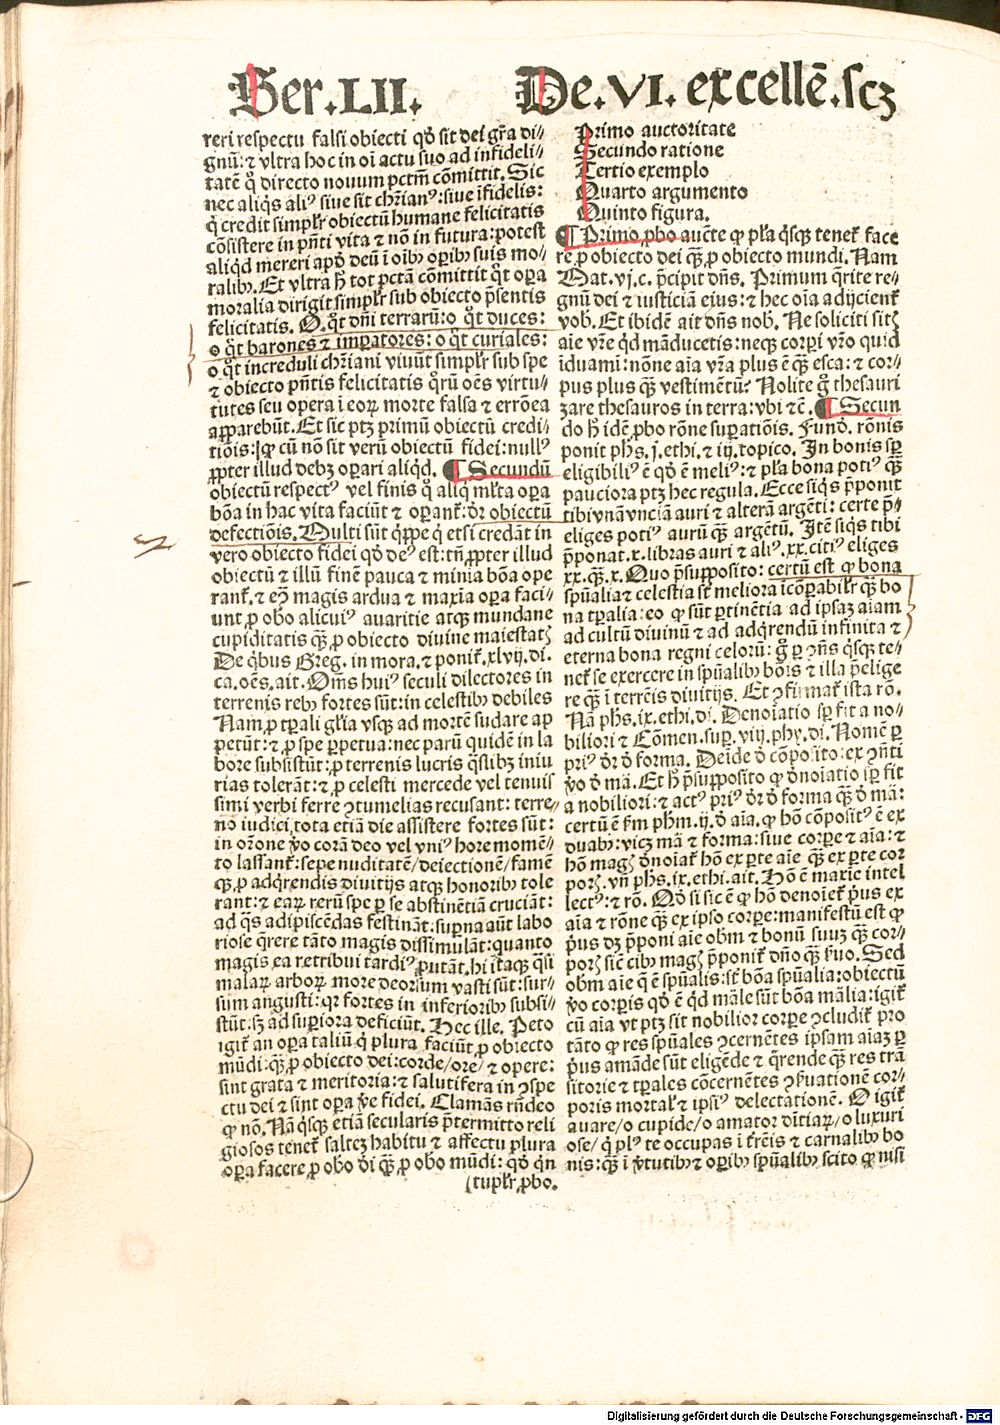 Ser.LII.
De.VI.excellē.scꝫ
reri respectu falsi obiecti qđ sit dei gr̄a di⸗
gnū: ⁊ vltra hoc in oī actu suo ad infideli⸗
tatē q̊ directo nouum pctm̄ cōmittit. Sic
nec aliqs aliꝰ siue sit chr̄ianꝰ: siue īfidelis:
q̇ credit simplr̄ obiectū humane felicitatis
cōsistere in pn̄ti vita ⁊ nō in futura: potest
aliqd mereri apđ deū ī oībꝫ oꝑibꝫ suis mo⸗
ralibꝫ. Et vltra ħ tot pctā cōmittit q̊t oꝑa
moralia dirigit simplr̄ sub obiecto p̄sentis
felicitatis. O.q̊t dn̄i terrarū: o q̊t duces:
o q̊t barones ⁊ imꝑatores: o q̊t curiales:
o q̊t increduli chr̄iani viuūt simplr̄ sub spe
⁊ obiecto pn̄tis felicitatis qͣrū oēs virtu⸗
tutes seu opera ī eoꝝ morte falsa ⁊ errōea
apparebūt. Et sic ptꝫ primū obiectū credi⸗
tiōis: ꝙ cū nō sit verū obiectū fidei: nullꝰ
ꝓpter illud debꝫ oꝑari aliqd. ¶ Secundū
obiectū respectꝰ vel finis q̊ aliq̇ ml̄ta oꝑa
bōa in hac vita faciūt ⁊ oꝑant̄: dr̄ obiectū
defectiōis. Multi sūt q̇ppe q̇ etsi credāt in
vero obiecto fidei qđ deꝰ est: tn̄ ꝓpter illud
obiectū ⁊ illū finē pauca ⁊ minīa bōa ope
rant̄. ⁊ eꝫ magis ardua ⁊ maxīa oꝑa faci⸗
unt ꝓ obo alicuiꝰ auaritie atqꝫ mundane
cupiditatis qꝫ ꝓ obiecto diuine maiestatꝭ
De q̇bus Greg. in mora. ⁊ ponit̄. xlvij. di.
ca. oēs. ait. Om̄s huiꝰ seculi dilectores in
terrenis rebꝫ fortes sūt: in celestibꝫ debiles
Nam ꝓ tꝑali gl̄ia vsqꝫ ad mortē sudare ap
petūt: ⁊ ꝓ spe ꝑpetua: nec parū quidē in la
bore subsistūt: ꝓ terrenis lucris qͣslibꝫ iniu
rias tolerāt: ⁊ ꝓ celesti mercede vel tenuis
simi verbi ferre ꝯtumelias recusant: terre⸗
no iudici tota etiā die assistere fortes sūt:
in or̄one ꝟo corā deo vel vniꝰ hore momē⸗
to lassant̄: sepe nuditatē/ deiectionē/ famē
qꝫ, ꝓ adq̇rendis diuitijs atqꝫ honoribꝫ tole
rant: ⁊ eaꝝ rerū spe ꝑ se abstinētiā cruciāt:
ad qͣs adipiscēdas festināt: suꝑna aūt labo
riose q̄rere tāto magis dissimulāt: quanto
magis ea retribui tardiꝰ putāt. hi itaqꝫ qͣsi
malaꝝ arboꝝ more deorsum vasti sūt: sur⸗
sum angusti: qr fortes in inferioribꝫ subsi⸗
stūt: sꝫ ad suꝑiora deficiūt. Hec ille. Peto
igit̄ an oꝑa taliū q̇ plura faciūt ꝓ obiecto
mūdi: qꝫ ꝓ obiecto dei: corde/ ore/ ⁊ opere:
sint grata ⁊ meritoria: ⁊ salutifera in ꝯspe
ctu dei ⁊ sint oꝑa ꝟe fidei. Clamās rn̄deo
ꝙ nō. Nā q̇sqꝫ etiā secularis p̄termitto reli
giosos tenet̄ saltē habitu ⁊ affectu plura
oꝑa facere ꝓ obo di qꝫ ꝓ obo mūdi: qđ qn
(tuplr̄ ꝓbo.
Primo auctoritate
Secundo ratione
Tertio exemplo
Quarto argumento
Quinto figura.
¶ Primo ꝓbo auc̄te ꝙ pl̄a q̇sqꝫ tenet̄ face
re ꝓ obiecto dei qꝫ ꝓ obiecto mundi. Nam
Mat. vj. c. p̄cipit dn̄s. Primum q̄rite re⸗
gnū dei ⁊ iusticiā eius: ⁊ hec oīa adijcient̄
vob. Et ibidē ait dn̄s nob. Ne soliciti sitꝭ
aīe vr̄e qd māducetis: neqꝫ corꝑi vr̄o quid
īduamī: nōne aīa vr̄a plus ē qꝫ esca: ⁊ cor⸗
pus plus qꝫ vestimētū? Nolite g̊ thesauri
zare thesauros in terra: vbi ⁊c̄. ¶ Secun
do ħ idē ꝓbo rōne suꝑatiōis. Fund̄. rōnis
ponit phs. j. ethi. ⁊ iij. topico. In bonis sꝑ
eligibiliꝰ ē qđ ē meliꝰ: ⁊ pl̄a bona potiꝰ qꝫ
pauciora ptꝫ hec regula. Ecce siqs p̄ponit
tibi vnā vnciā auri ⁊ alterā argēti: certe p̄⸗
eliges potiꝰ aurū qꝫ argētū. Itē siqs tibi
p̄ponat. x. libras auri ⁊ aliꝰ. xx. citiꝰ eliges
xx. qꝫ. x. Quo p̄supposito: certū est ꝙ bona
spūalia ⁊ celestia sūt meliora īcōꝑabilr̄ qꝫ bo
na tꝑalia: eo ꝙ sūt ꝑtinētia ad ipsaꝫ aīam
ad cultū diuinū ⁊ ad adq̇rendū infinita ⁊
eterna bona regni celorū: g̊ ꝑ ꝯn̄s q̇sqꝫ te⸗
net̄ se exercere in spūalibꝫ bōis ⁊ illa p̄elige
re qꝫ ī terrēis diuitijs. Et ꝯfirmat̄ ista rō.
Nā phs. ix. ethi. di. Denoīatio sꝑ fit a no⸗
biliori ⁊ Cōmen. suꝑ. viij. phy. di. Nomē ꝑ
priꝰ dr̄ đ forma. Deīde đ cōposito: ex ꝯn̄ti
ꝟo đ mā. Et ħ p̄supposito ꝙ đnoīatio sꝑ fit
a nobiliori: ⁊ actꝰ priꝰ dr̄ đ forma qꝫ đ mā:
certū ē ẜm phm. ij. đ aīa. ꝙ hō cōpositꝰ ē ex
duabꝫ: vicꝫ mā ⁊ forma: siue corꝑe ⁊ aīa: ⁊
hō magꝭ đnoīat̄ hō ex ꝑte aīe qꝫ ex ꝑte cor
porꝭ. vn̄ phs. ix. ethi. ait. Hō ē maxīe intel
lectꝰ: ⁊ rō. Qđ si sic ē ꝙ hō denoīet̄ p̄us ex
aīa ⁊ rōne qꝫ ex ipso corꝑe: manifestū est ꝙ
p̄us dꝫ p̄poni aīe obm̄ ⁊ bonū suuꝫ qꝫ cor⸗
porꝭ sic cibꝫ magꝭ p̄ponit̄ dn̄o qꝫ ẜuo. Sed
obm̄ aīe q̇ ē spūalis: sūt bōa spūalia: obiectū
ꝟo corꝑis qđ ē qd māle sūt bōa mālia: igit̄
cū aīa vt ptꝫ sit nobilior corꝑe ꝯcludit̄ pro
tāto ꝙ res spūales ꝯcernētes ipsam aīaꝫ ꝑ
p̄us amāde sūt eligēde ⁊ q̄rende qꝫ res trā
sitorie ⁊ tꝑales cōcernētes ꝯẜuationē cor⸗
poris mortal̄ ⁊ ipsiꝰ delectationē. O igit̄
auare/ o cupide/ o amator diuitiaꝝ/ o luxuri
ose/ q̇ plꝰ te occupas ī t̄rēis ⁊ carnalibꝫ bo
nis: qꝫ ī ꝟtutibꝫ ⁊ oꝑibꝫ spūalibꝫ scito ꝙ nisi
Digitalisierung gefördert durch die Deutsche Forschungsgemeinschaft - DFG